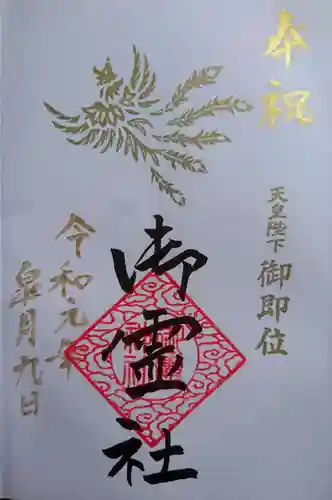 奉祝
天皇陛下 御即位
御霊社
令和元年
皐月九日